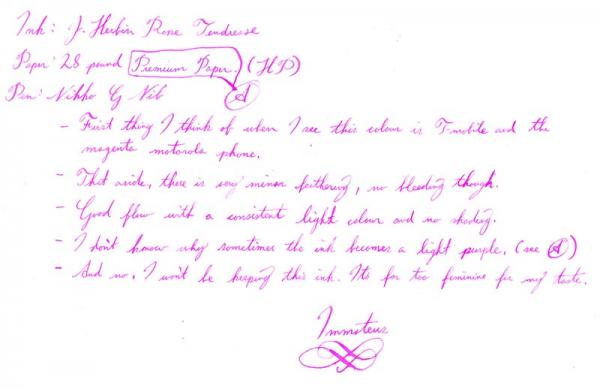 Ink: J. Herbin Rose Tendresse
Paper: 28 pound Premium Paper. (HP)
Pen: Nikko G Nib A
- First thing I think of when I see this colour is T-mobile and the
magenta motorola phone.
- That aside, there is very minor feathering, no bleeding though.
- Good flow with a consistent light colour and no shading.
- I don't know why sometimes the ink becomes a light purple. (see A)
- And no, I won't be keeping this ink. Its far too feminine for my taste.